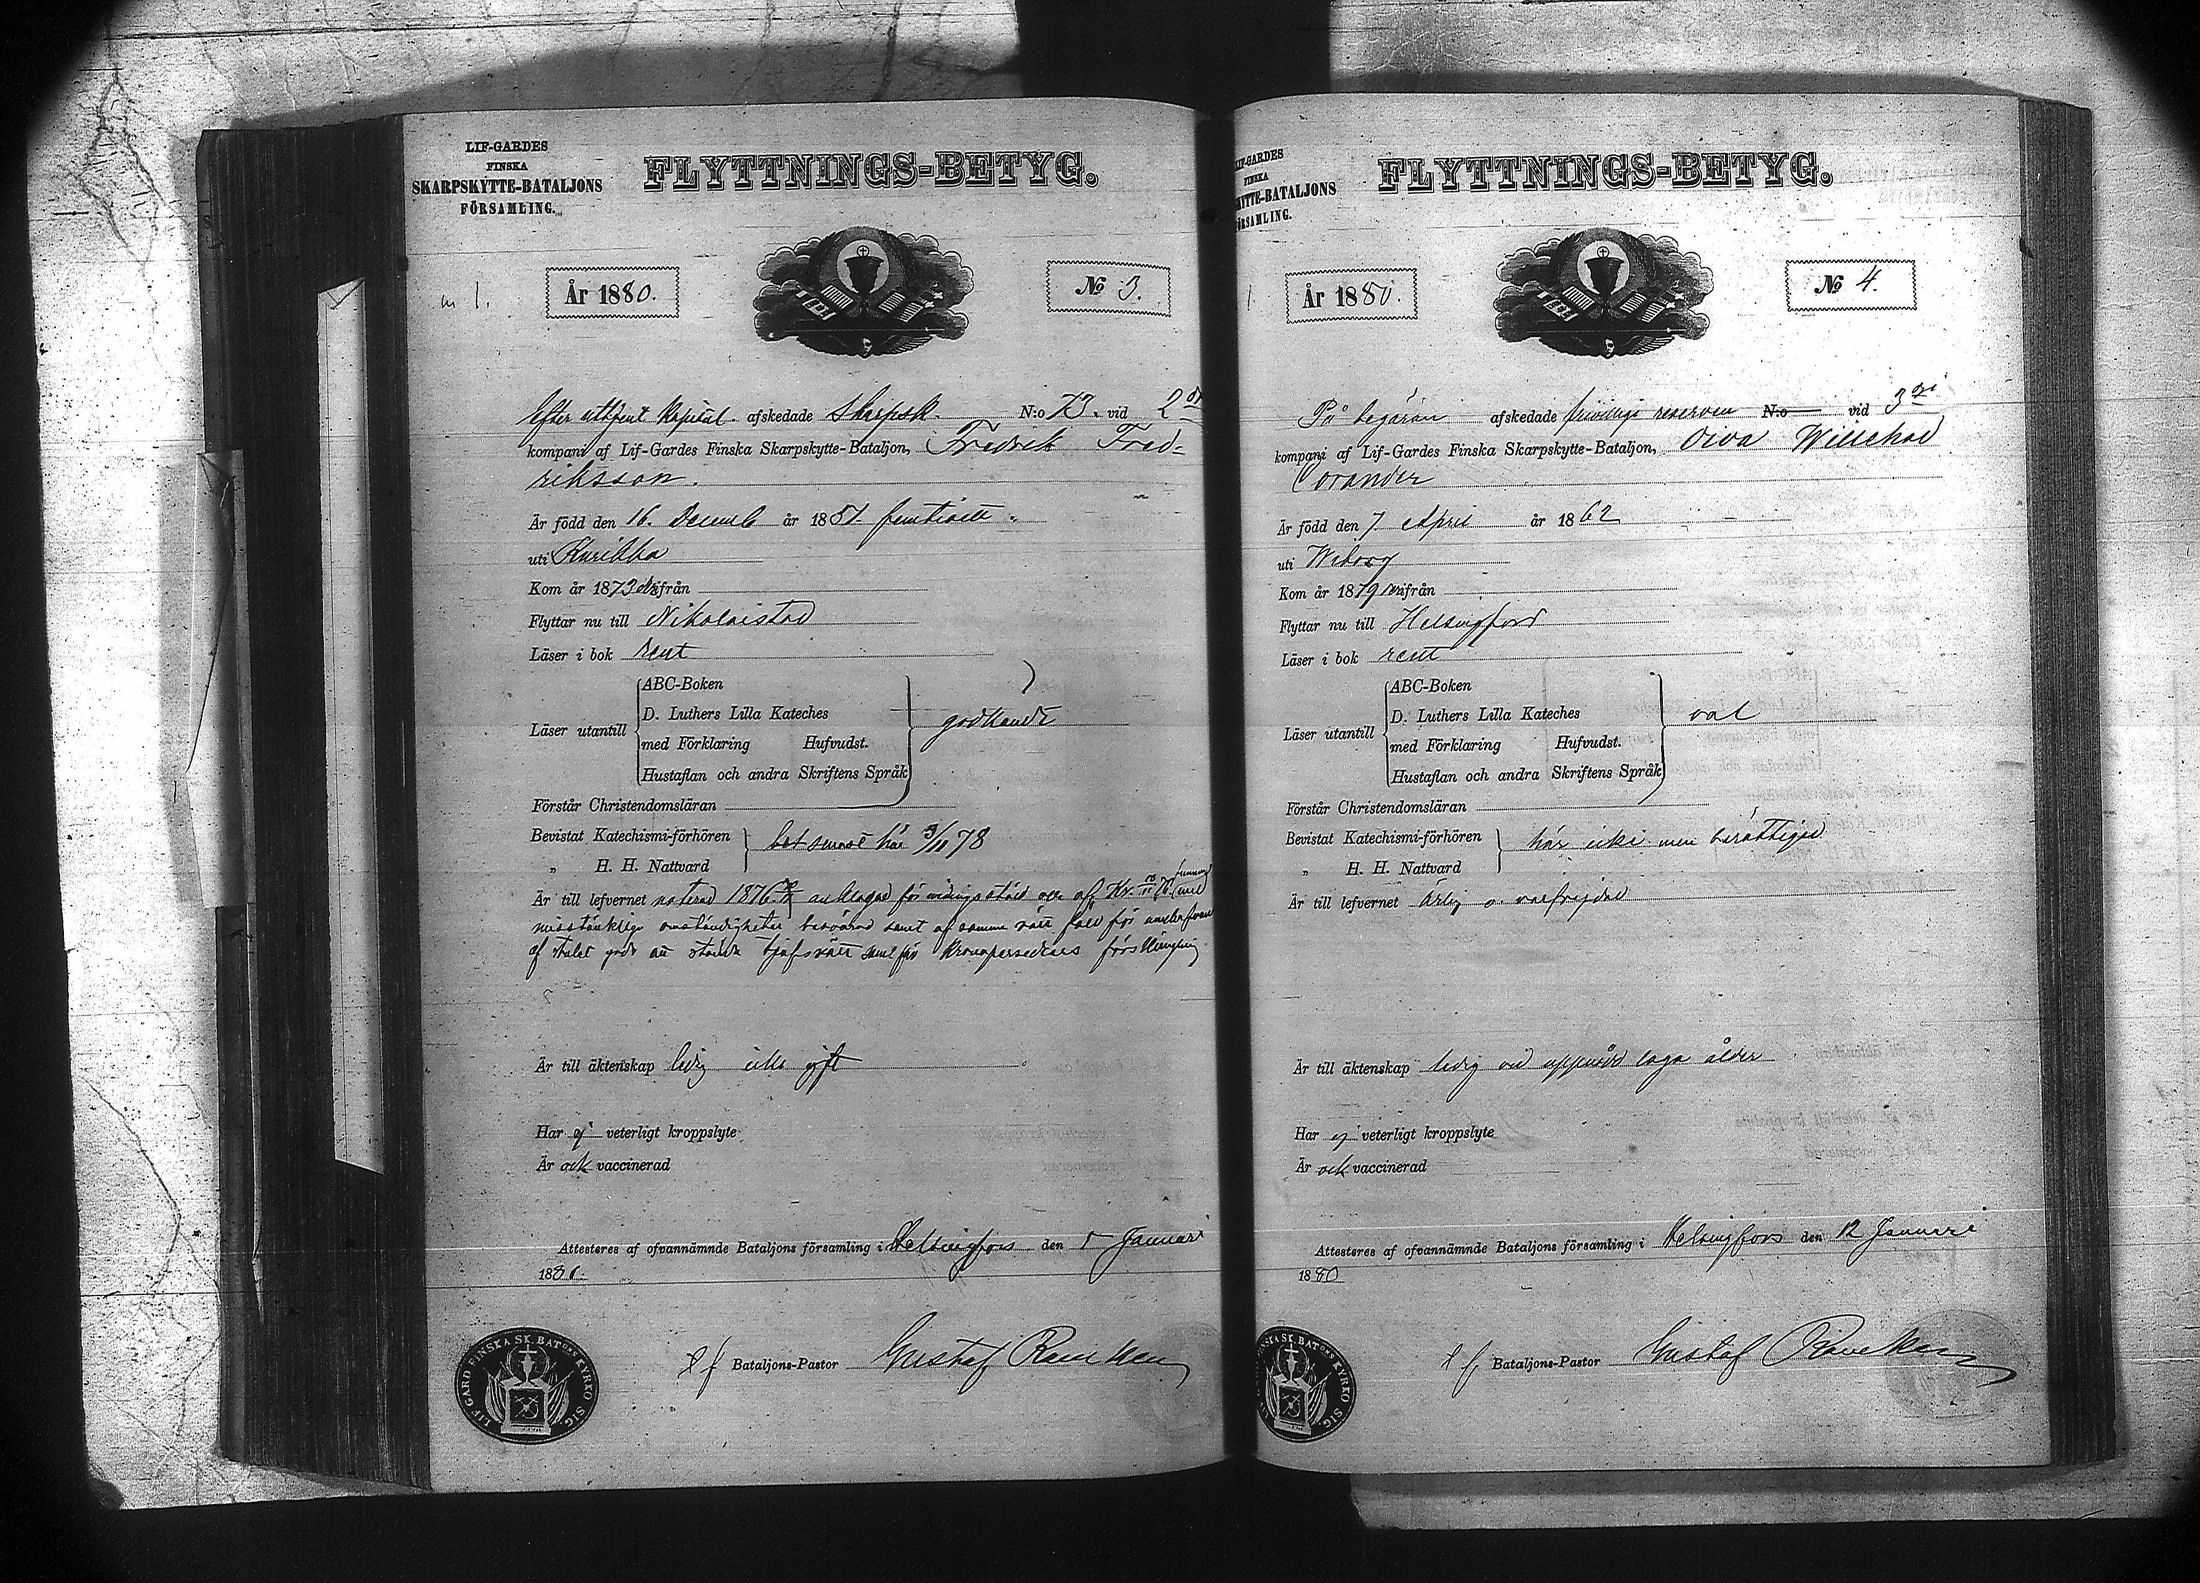 LIF-GARDES
FINSKA
SKARPSKYTTE-BATALJONS
FÖRSAMLING.
FLYTTNINGS-BETYG.
År 1880.
No 3.
Efter uttjent Kapitul. afskedade Skarpsk. N:o 73. vid 2dr
kompani af Lif-Gardes Finska Skarpskytte-Bataljon, Fredrik Fred-
riksson.
Är född den 16. Decemb år 1851. femtioett.
uti Kurikka
Kom år 1873 från
Flyttar nu till Nikolaistad
Läser i bok rent
ABC-Boken
D. Luthers Lilla Kateches
Läser utantill godkändt
med Förklaring Hufvudst.
Hustaflan och andra Skriftens Språk
Förstår Christendomsläran
Bevistat Katechismi-förhören
senast här 3/11 78
„ H. H. Nattvard
Är till lefvernet noterad 1876 anklagad för af Kr.
misstänklige omständigheter besvärad samt af samma rätt för
af stulet gods samt för Kronopersedlars förskingring
Är till äktenskap ledig icke gift
Har ej veterligt kroppslyte
Är ock vaccinerad
Attesteras af ofvannämnde Bataljons församling i Helsingfors den Januari
1880.
Bataljons-Pastor Gustaf Rancken
LIF GARD FINSKA SK. BATONS KYRKO SIG.
LIF-GARDES
FINSKA
SKYTTE-BATALJONS
FÖRSAMLING.
FLYTTNINGS-BETYG.
År 1880.
No 4.
På begäran afskedade frivillige reserven N:o vid 3dje
kompani af Lif-Gardes Finska Skarpskytte-Bataljon, Oiva Willehad
Corander
Är född den 7 April år 1862
uti Wiborg
Kom år 1879 från
Flyttar nu till Helsingfors
Läser i bok rent
ABC-Boken
D. Luthers Lilla Kateches
Läser utantill val
med Förklaring Hufvudst.
Hustaflan och andra Skriftens Språk
Förstår Christendomsläran
Bevistat Katechismi-förhören
här icke men berättigad
„ H. H. Nattvard
Är till lefvernet ärlig o. välfrejdad
Är till äktenskap ledig vid uppnådd laga ålder
Har ej veterligt kroppslyte
Är ock vaccinerad
Attesteras af ofvannämnde Bataljons församling i Helsingfors den 12 Januari
1880
Bataljons-Pastor Gustaf Rancken
SKA SK. BATONS KYRKO SIG.